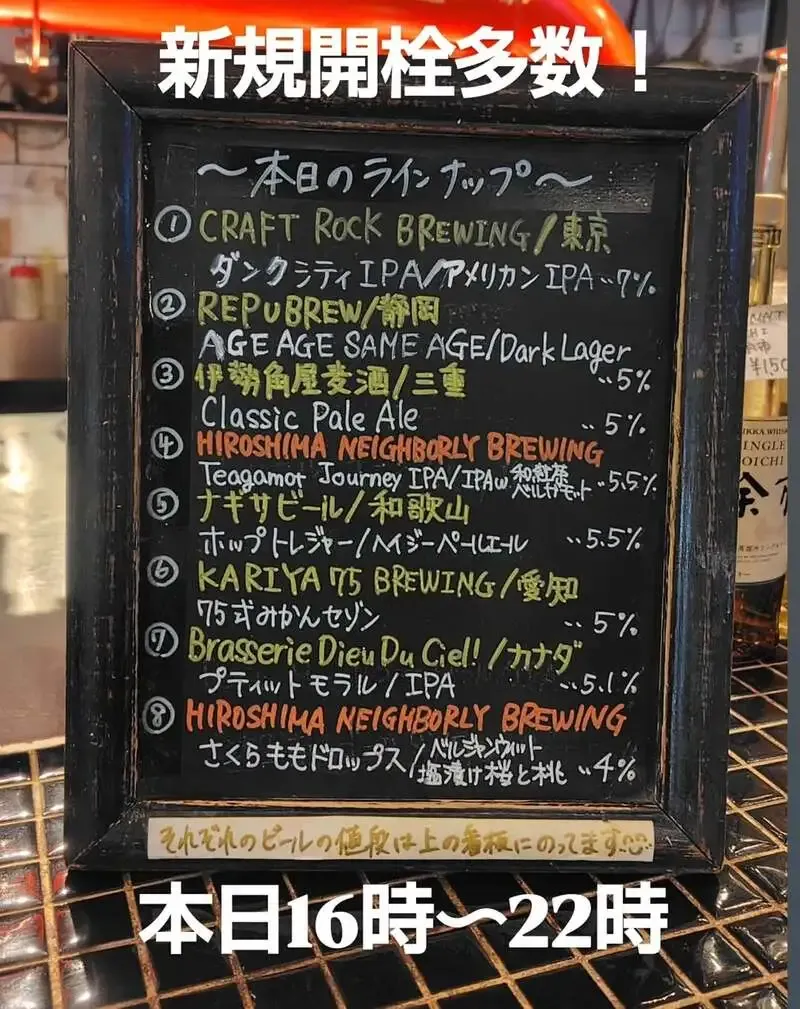 新規開栓多数！
〜本日のラインナップ〜
① CRAFT ROCK BREWING/東京
ダンクシティIPA/アメリカンIPA…7%
② REPUBREW/静岡
AGE AGE SAME AGE/Dark Lager
…5%
③ 伊勢角屋麦酒/三重
Classic Pale Ale …5%
④ HIROSHIMA NEIGHBORLY BREWING
Teagamot Journey IPA/IPAw 和紅茶 ベルガモット…5.5%
⑤ ナギサビール/和歌山
ホップトレジャー/ヘイジーペールエール …5.5%
⑥ KARIYA 75 BREWING/愛知
75式みかんセゾン …5%
⑦ Brasserie Dieu Du Ciel!/カナダ
プティットモラル/IPA …5.1%
⑧ HIROSHIMA NEIGHBORLY BREWING
さくらももドロップス/ベルジャンウィット 塩漬け桜と桃 …4%
それぞれのビールの値段は上の看板にのってます
本日16時〜22時